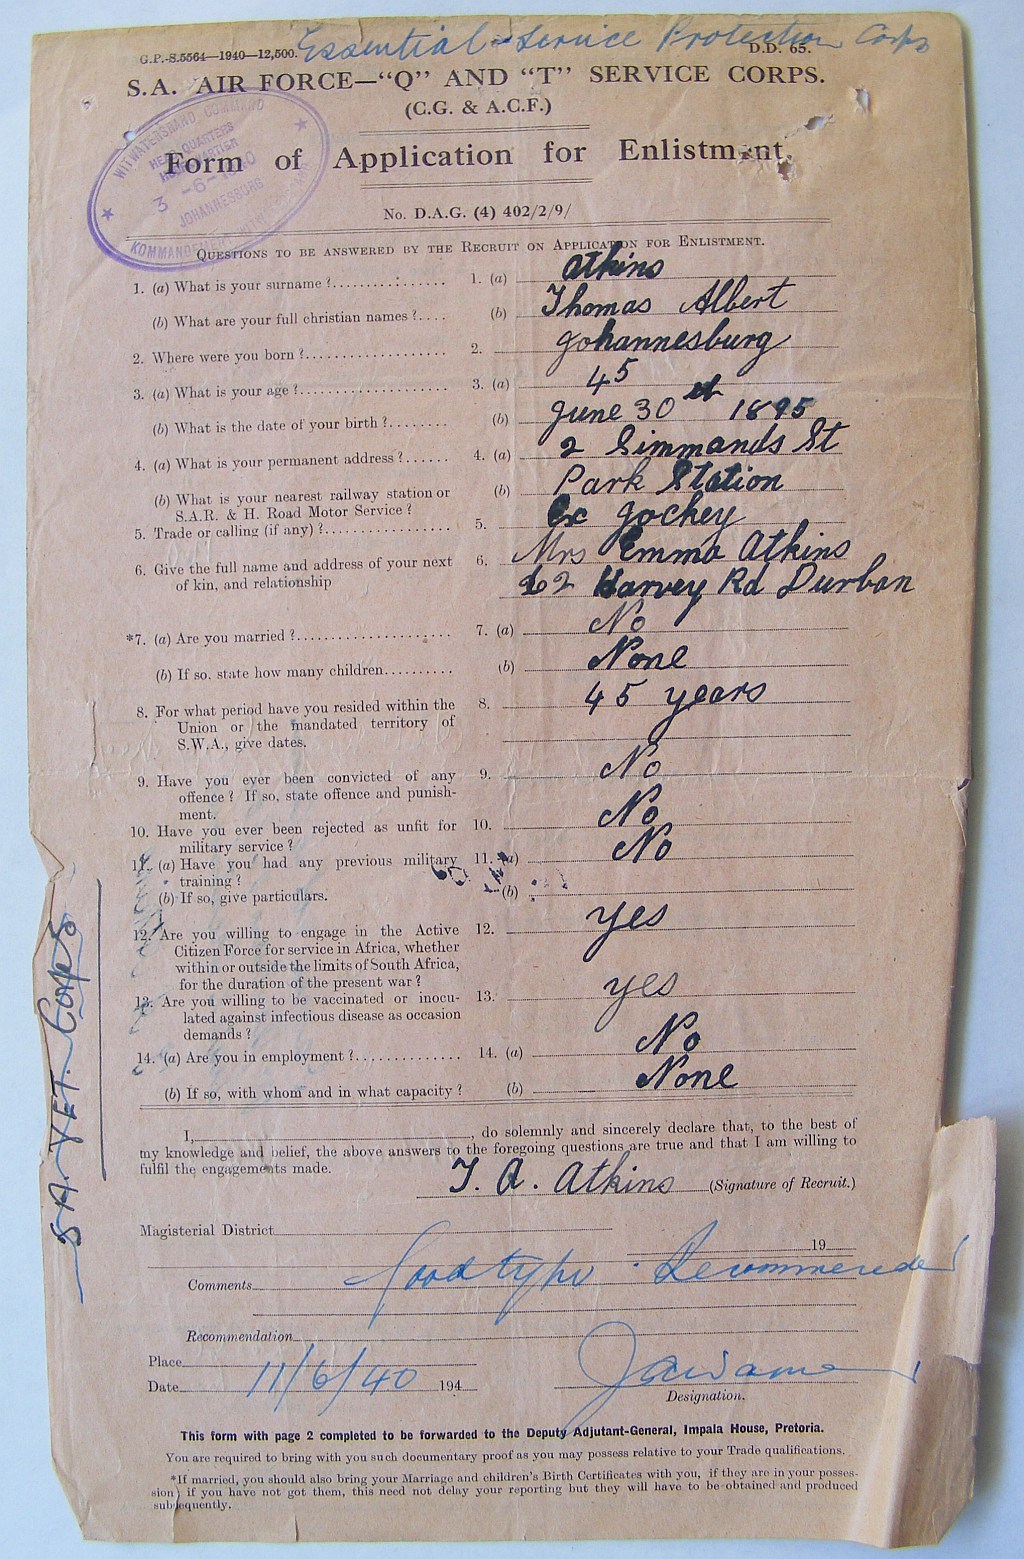 Essential Service Protection Corps
G.P.-S.5564—1940—12,500. D.D. 65.
S.A. AIR FORCE—"Q" AND "T" SERVICE CORPS.
(C.G. & A.C.F.)
WITWATERSRAND COMMAND
HEAD QUARTERS
3 -6- 1940
JOHANNESBURG
Form of Application for Enlistment.
No. D.A.G. (4) 402/2/9/
QUESTIONS TO BE ANSWERED BY THE RECRUIT ON APPLICATION FOR ENLISTMENT.
1. (a) What is your surname ?.................. 1. (a) Atkins
(b) What are your full christian names ?.... (b) Thomas Albert
2. Where were you born ?.................. 2. Johannesburg
3. (a) What is your age ?.................. 3. (a) 45
(b) What is the date of your birth ?........ (b) June 30 1895
4. (a) What is your permanent address ?...... 4. (a) 2 Simmands St
(b) What is your nearest railway station or (b) Park Station
S.A.R. & H. Road Motor Service ?
5. Trade or calling (if any) ?.................. 5. Ex Jockey
6. Give the full name and address of your next 6. Mrs Emma Atkins
of kin, and relationship 62 Harvey Rd Durban
*7. (a) Are you married ?.................. 7. (a) No
(b) If so, state how many children.......... (b) None
8. For what period have you resided within the 8. 45 years
Union or the mandated territory of
S.W.A., give dates.
9. Have you ever been convicted of any 9. No
offence ? If so, state offence and punish-
ment.
10. Have you ever been rejected as unfit for 10. No
military service ?
11. (a) Have you had any previous military 11. (a) No
training ?
(b) If so, give particulars. (b)
12. Are you willing to engage in the Active 12. yes
Citizen Force for service in Africa, whether
within or outside the limits of South Africa,
for the duration of the present war ?
13. Are you willing to be vaccinated or inocu- 13. yes
lated against infectious disease as occasion
demands ?
14. (a) Are you in employment ?.............. 14. (a) No
(b) If so, with whom and in what capacity ? (b) None
S.A. VET. Corps
I, , do solemnly and sincerely declare that, to the best of
my knowledge and belief, the above answers to the foregoing questions are true and that I am willing to
fulfil the engagements made.
T. A. Atkins (Signature of Recruit.)
Magisterial District
19
Comments Good type. Recommended
Recommendation
Place
Date 11/6/40 194
Designation.
This form with page 2 completed to be forwarded to the Deputy Adjutant-General, Impala House, Pretoria.
You are required to bring with you such documentary proof as you may possess relative to your Trade qualifications.
*If married, you should also bring your Marriage and children's Birth Certificates with you, if they are in your posses-
sion; if you have not got them, this need not delay your reporting but they will have to be obtained and produced
subsequently.